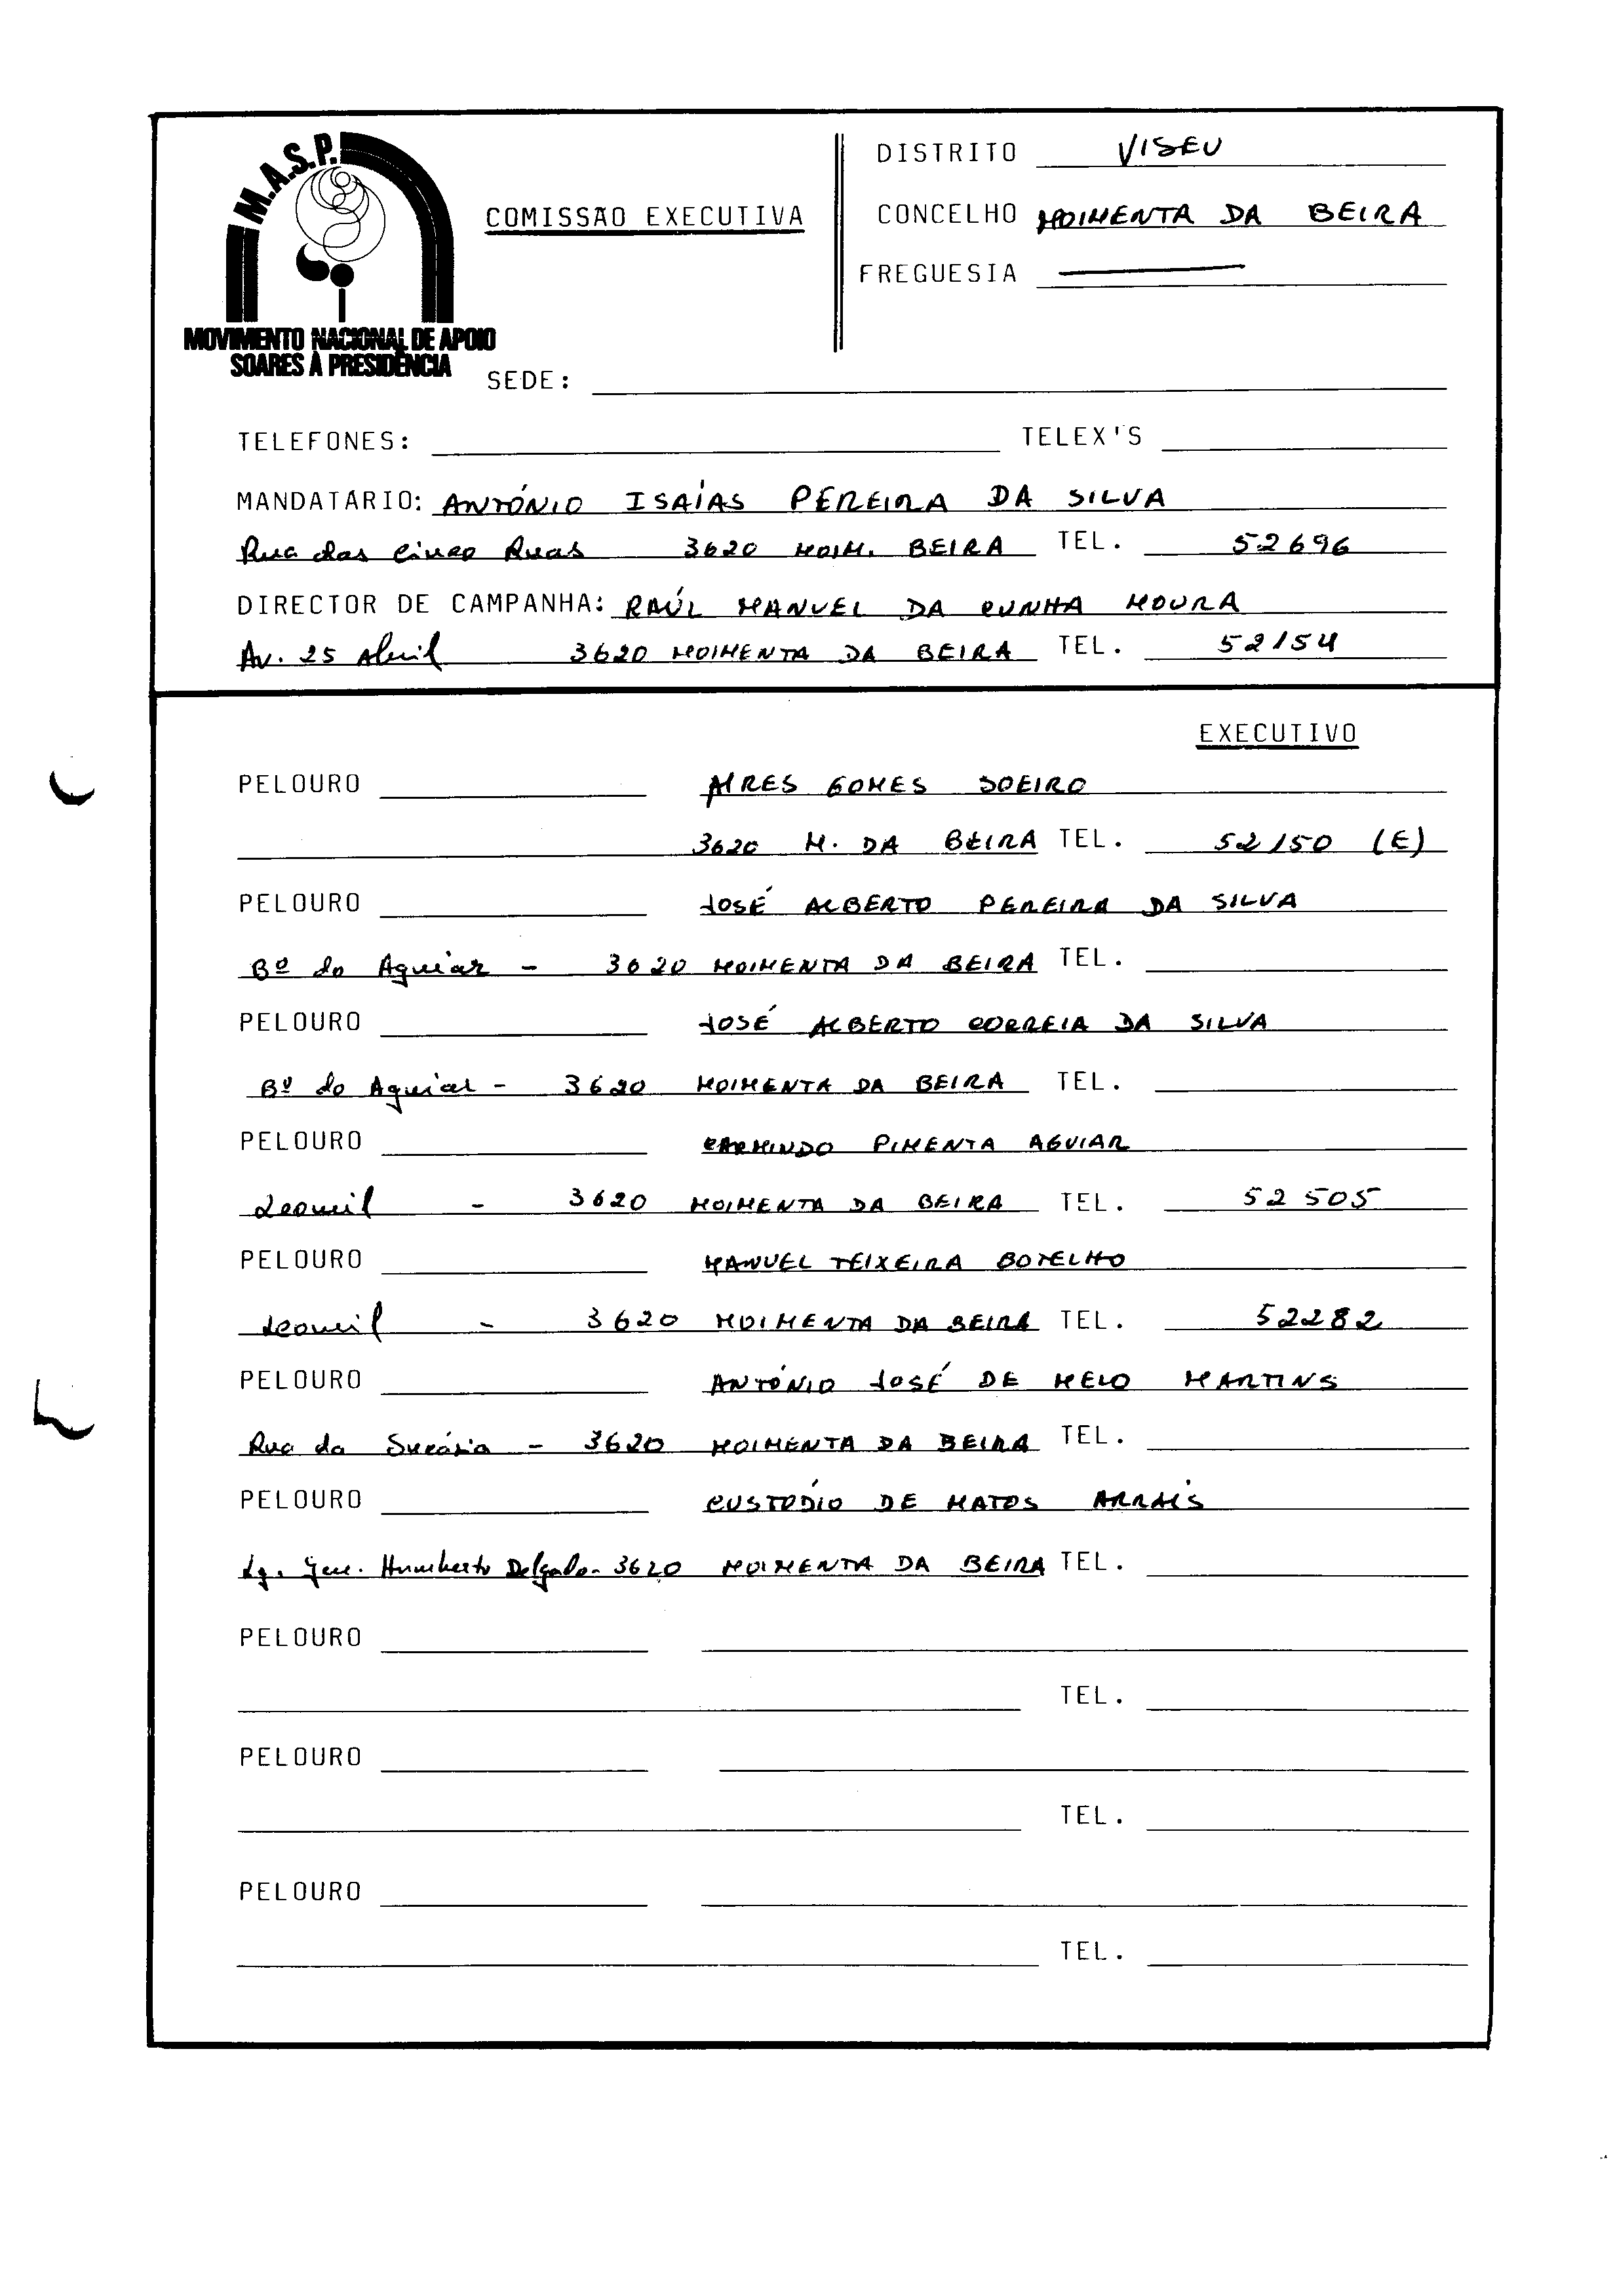 M.A.S.P.
MOVIMENTO NACIONAL DE APOIO
SOARES À PRESIDÊNCIA
COMISSÃO EXECUTIVA
DISTRITO VISEU
CONCELHO MOIMENTA DA BEIRA
FREGUESIA
SEDE:
TELEFONES: TELEX'S
MANDATÁRIO: ANTÓNIO ISAÍAS PEREIRA DA SILVA
Rua das Cinco Ruas 3620 MOIM. BEIRA TEL. 52696
DIRECTOR DE CAMPANHA: RAÚL MANUEL DA CUNHA MOURA
Av. 25 Abril 3620 MOIMENTA DA BEIRA TEL. 52154
EXECUTIVO
PELOURO AIRES GOMES SOEIRO
3620 M. DA BEIRA TEL. 52150 (E)
PELOURO JOSÉ ALBERTO PEREIRA DA SILVA
Bº do Aguiar - 3620 MOIMENTA DA BEIRA TEL.
PELOURO JOSÉ ALBERTO CORREIA DA SILVA
Bº do Aguiar - 3620 MOIMENTA DA BEIRA TEL.
PELOURO CARMINDO PIMENTA AGUIAR
Leomil - 3620 MOIMENTA DA BEIRA TEL. 52505
PELOURO MANUEL TEIXEIRA BOTELHO
Leomil - 3620 MOIMENTA DA BEIRA TEL. 52282
PELOURO ANTÓNIO JOSÉ DE MELO MARTINS
Rua da - 3620 MOIMENTA DA BEIRA TEL.
PELOURO CUSTÓDIO DE MATOS ARRAIS
Lg. Gen. Humberto Delgado - 3620 MOIMENTA DA BEIRA TEL.
PELOURO
TEL.
PELOURO
TEL.
PELOURO
TEL.